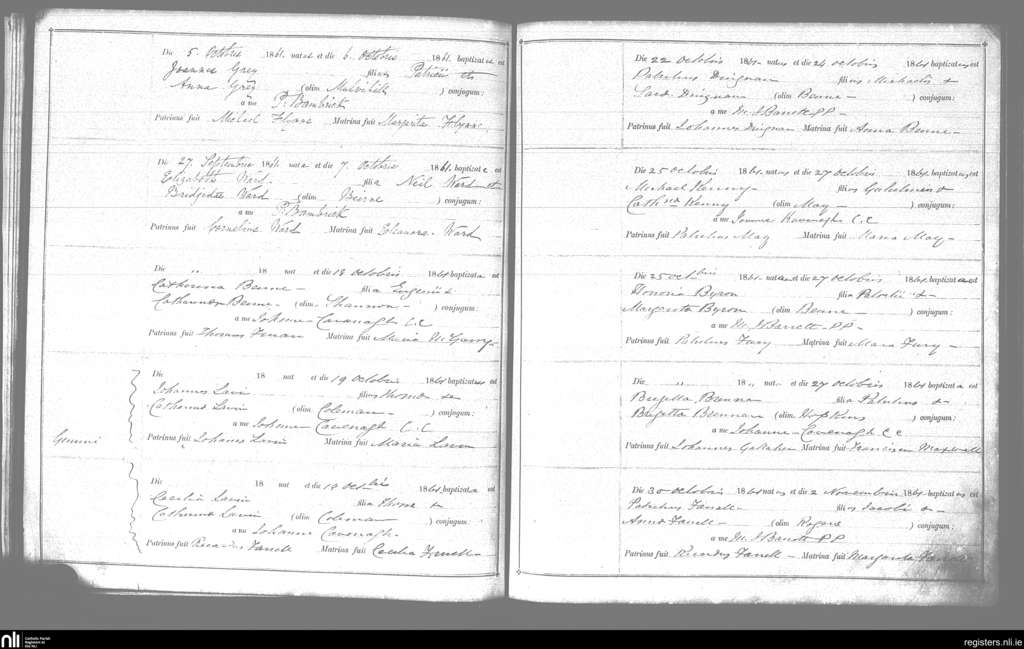 Die 5. Octobris 1861. nat us et die 6. Octobris 1861. baptizat us est
Joannes Grey filius Patricii et
Anna Grey (olim ) conjugum:
a me P. Bambrick
Patrinus fuit Michael Flynn Matrina fuit Margarita Flynn.
Die 27. Septembris 1861. nat a et die 7. Octobris 1861. baptizat a est
Elizabeth Ward filia Neil Ward et
Bridgidae Ward (olim Beirne ) conjugum:
a me P. Bambrick
Patrinus fuit Cornelius Ward Matrina fuit Eleanora Ward
Die „ 18 nat et die 18 Octobris 1861 baptizat a est
Catherina Beirne filia Eugenii &
Catherina Beirne (olim Shannon ) conjugum:
a me Johanne Cavanagh C.C
Patrinus fuit Thomas Matrina fuit Maria McGarry
Die 18 nat et die 19 Octobris 1861 baptizatus est
Johannes Lavin filius Thomae &
Catherina Lavin (olim Coleman ) conjugum:
a me Johanne Cavenagh C.C
Gemini
Patrinus fuit Johannes Lavin Matrina fuit Maria Lavin
Die 18 nat et die 19 Octobris 1861 baptizata est
Cecelia Lavin filia Thomae &
Catherina Lavin (olim Coleman ) conjugum:
a me Johanne Cavenagh
Patrinus fuit Ricardus Farrell Matrina fuit Cecelia Farrell
Die 22 Octobris 1861 natus et die 24 Octobris 1861 baptizatus est
Patritius Duignan filius Michaelis &
Duignan (olim Beirne ) conjugum:
a me M. J Barrett PP
Patrinus fuit Johannes Duignan Matrina fuit Anna Beirne
Die 25 Octobris 1861. natus et die 27 Octobris 1861. baptizatus est
Michael Kenny filius &
Cathna Kenny (olim May ) conjugum:
a me Joanne Kavanagh C.C
Patrinus fuit Patritius May Matrina fuit Maria May
Die 25 Octbris 1861. nata et die 27 Octobris 1861. baptizata est
Honoria Byron filia Patritii &
Margarita Byron (olim Beirne ) conjugum:
a me M. J Barrett PP
Patrinus fuit Patritius Fury Matrina fuit Maria Fury
Die „ 18 „ nat et die 27 Octobris 1861 baptizat a est
Brigitta Brennan filia Patritius &
Brigitta Brennan (olim Hopkins ) conjugum:
a me Johanne Cavenagh CC
Patrinus fuit Johannes Gallaher Matrina fuit Maxwell
Die 30 Octobris 1861 natus et die 2 Novembris 1861. baptizatus est
Patritius Farrell filius Jacobi &
Anna Farrell (olim ) conjugum:
a me M. J Barrett PP
Patrinus fuit Farrell Matrina fuit Margarita
nli
Catholic Parish
Registers at
the NLI
registers.nli.ie